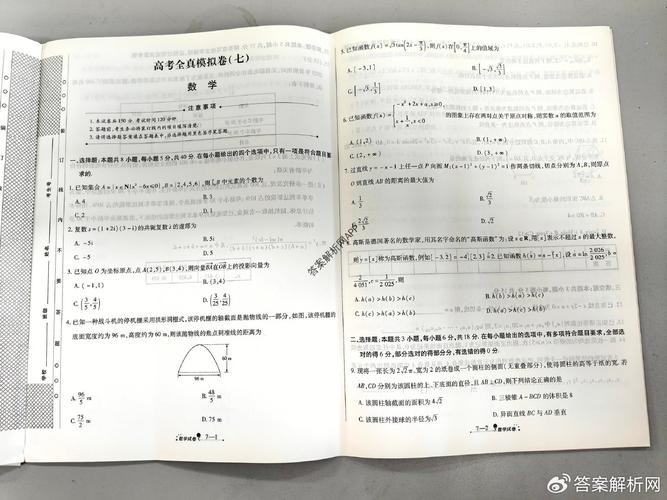 高考全真模拟卷(七)
数学
注意事项
1.本试卷共150分,考试时间120分钟.
2.答题前,考生务必清楚
3.请将选择题答案填在答题表中,非选择题用黑色签字笔答题.
一、选择题:本题共8小题,每小题5分,共40分.在每小题给出的四个选项中,只有一项是符合题目要
求的.
1.已知集合A={x∈N|x²-6x≤0},B={2,4,5,6},则
中元素的个数为
A.4 B.3
C.2 D.1
2.复数z=(1+2i)(3-i)的共轭复数
的虚部为
A.-5i B.5i
C.-5 D.5
3.已知点O为坐标原点,点A(2,5),B(3,4),则向量BA在OB上的投影向量为
A.(-1,1) B.(3,4)
C.(3/5,4/5) D.(3/25,4/25)
4.已知一种战斗机的停机棚采用拱形洞棚式,该停机棚的轴截面是抛物线的一部分,如图,该停机棚的
底面宽度约为96 m,高度约为60 m,则该抛物线的焦点到准线的距离为
60 m
96 m
A.96/5 m B.48/5 m
C.75/2 m D.75 m
数学试卷 7—1
5.已知函数f(x)=√3tan(2x-π/3),则f(x)在[0,π/4]上的值域为
A.[-1,1] B.[-√3,√3/3]
C.[-√3,√3] D.[1,3]
6.已知函数f(x)={-x²+2x+a,x≥0,
x+1/x,x<0
的图象上存在两对点关于原点对称,则实数a的取值范围为
A.(1,2) B.(1,+∞)
C.(2,+∞) D.(3,+∞)
7.过直线y=-x-1上任一点P向圆M:(x-1)²+(y-1)²=1作两条切线,切点分别为A,B,则原点
O到直线AB的距离的最大值为
A.1/3 B.√2/3
C.2√2/3 D.√2
8.高斯是德国著名的数学家,用其名字命名的“高斯函数”为:设x∈R,用[x]表示不超过x的最大整数,
则y=[x]称为高斯函数,例如[-3.2]=-4,[2.3]=2.已知函数h(x)=x-[x],设a=ln 2 026/2 025,b=
2/4 051,c=1/2 025,则
A.h(a)>h(b)>h(c) B.h(b)>h(a)>h(c)
C.h(c)>h(a)>h(b) D.h(c)>h(b)>h(a)
二、选择题:本题共3小题,每小题6分,共18分.在每小题给出的选项中,有多项符合题目要求.全部选
对的得6分,部分选对的得部分分,有选错的得0分.
9.现将一张长为2√2π,宽为2的纸卷成一个圆柱的侧面(无重叠部分),使得圆柱的高等于纸的宽.若
AB,CD分别为该圆柱的上、下底面的直径,且AB⊥CD,则下列结论正确的是
A.该圆柱轴截面的面积为4√2 B.三棱锥A-BCD的体积是8
C.该圆柱外接球的半径为√3 D.异面直线BC与AD垂直
7—2 数学试卷
考生号
姓名
班级
学校
装
订
线
内
不
要
答
题
答案解析网APP
答案解析网